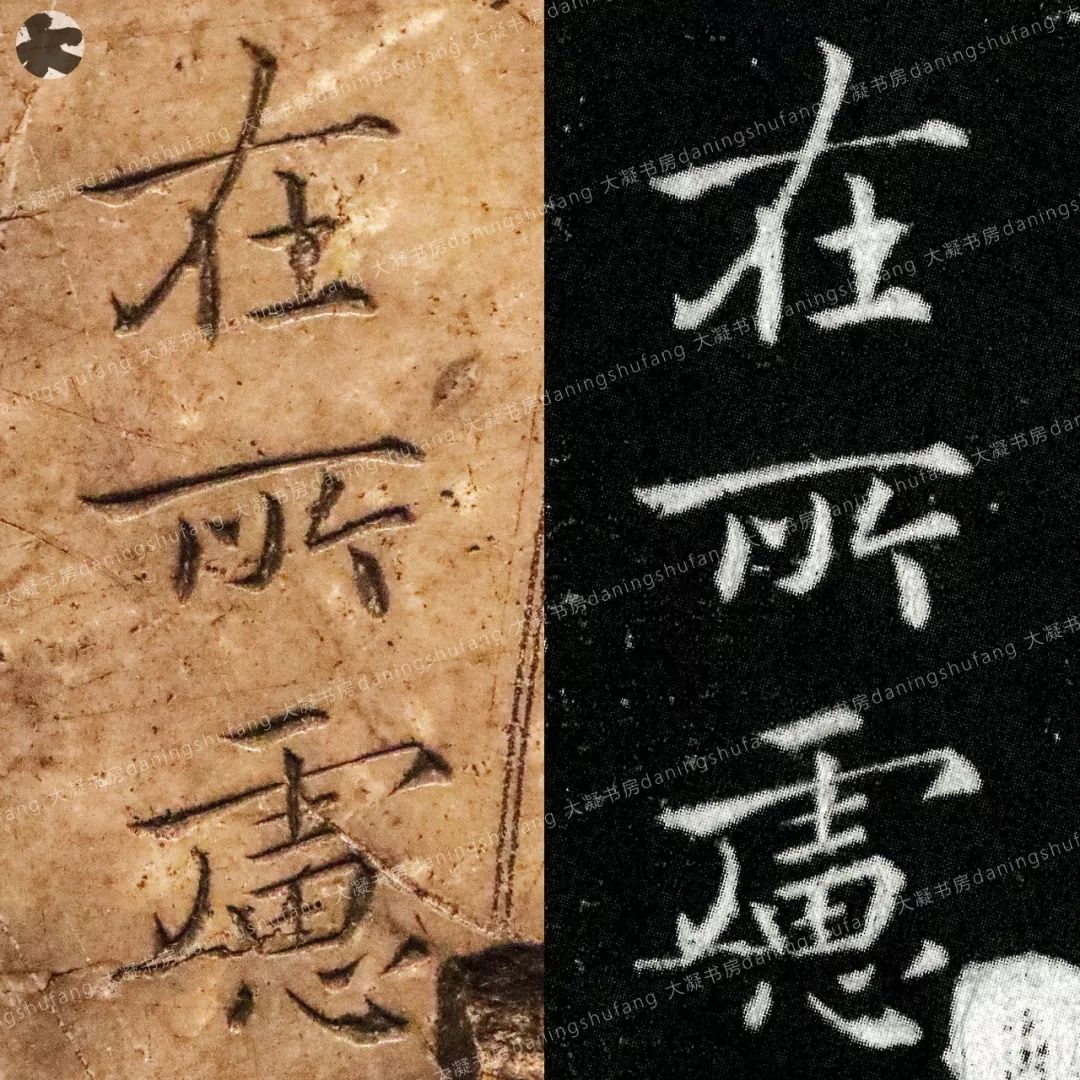 在
所
慮
在
所
慮
大凝书房daningshufang